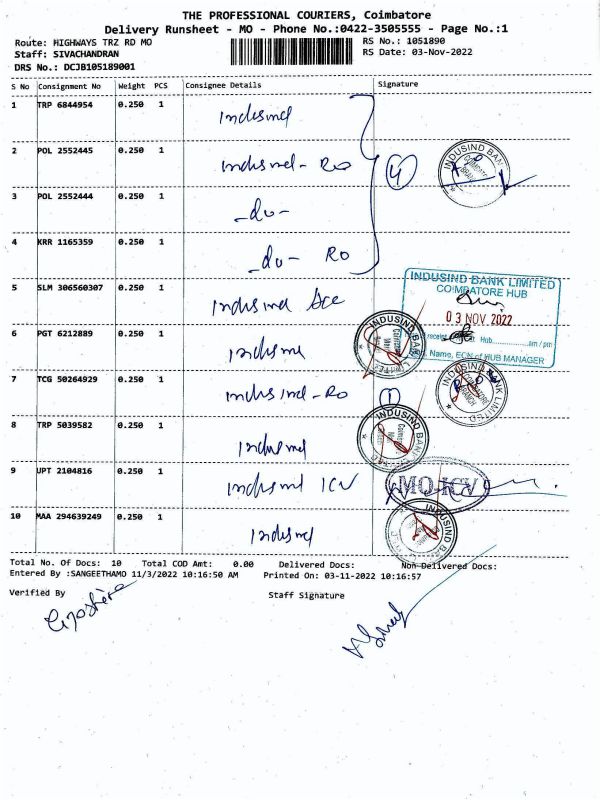 THE PROFESSIONAL COURIERS, Coimbatore
Delivery Runsheet - MO - Phone No.:0422-3505555 - Page No.:1
Route: HIGHWAYS TRZ RD MO
RS No.: 1051890
Staff: SIVACHANDRAN
RS Date: 03-Nov-2022
DRS No.: DCJB105189001
S No Consignment No Weight PCS Consignee Details Signature
1 TRP 6844954 0.250 1 Indusind
2 POL 2552445 0.250 1 Indusind - RO 4
INDUSIND BAN
3 POL 2552444 0.250 1 -do-
4 KRR 1165359 0.250 1 -do- RO
INDUSIND BANK LIMITED
COIMBATORE HUB
03 NOV 2022
5 SLM 306560307 0.250 1 Indusind
receipt Hub..............am / pm
Name, ECN of HUB MANAGER
6 PGT 6212889 0.250 1 Indusind
INDUSIND BAN
7 TCG 50264929 0.250 1 Indusind - RO 1
INDUSIND BANK LIMITED
8 TRP 5039582 0.250 1 Indusind
INDUSIND BAN
9 UPT 2104816 0.250 1 Indusind ICV
MO-ICV
10 MAA 294639249 0.250 1 Indusind
INDUSIND
Total No. Of Docs: 10 Total COD Amt: 0.00 Delivered Docs: Non-Delivered Docs:
Entered By :SANGEETHAMO 11/3/2022 10:16:50 AM Printed On: 03-11-2022 10:16:57
Verified By Staff Signature